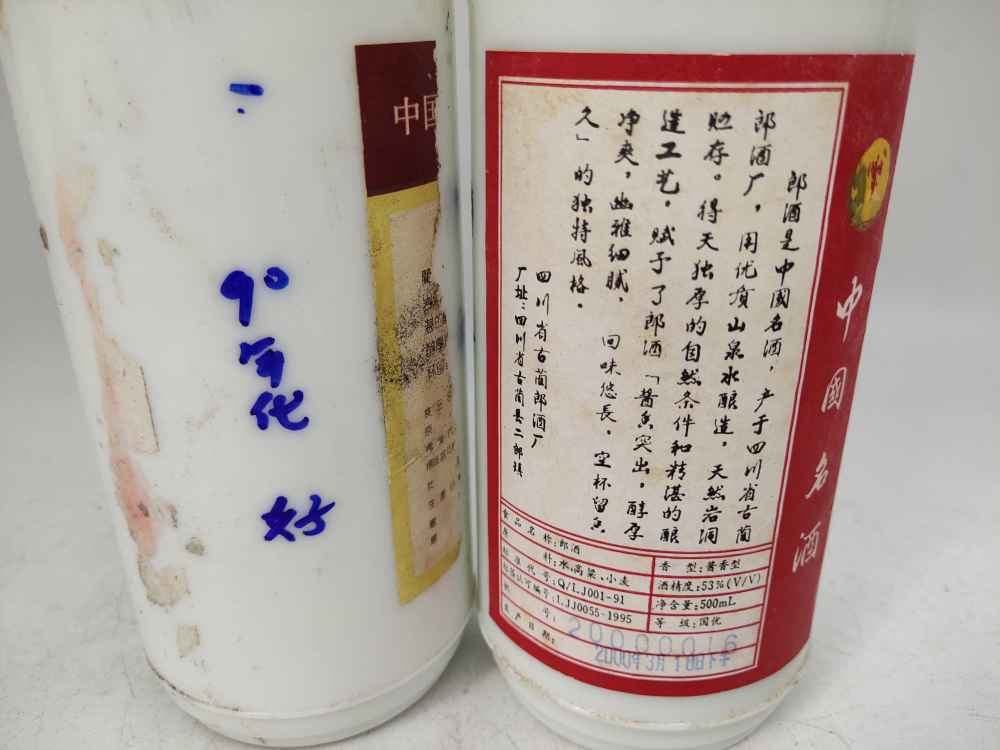 9°
年代
好
中国
郎酒是中國名酒，产于四川省古蔺
郎酒厂，用优质山泉水酿造，天然岩洞
贮存。得天独厚的自然条件和精湛的酿
造工艺，赋予了郎酒「酱香突出，醇厚
净爽，幽雅细腻，回味悠長，空杯留香
久」的独特風格。
四川省古蔺郎酒厂
厂址：四川省古蔺县二郎镇
食品名称：郎酒
原料：水、高粱、小麦
香型：酱香型
标准代号：Q/LJ001-91
酒精度：53%(V/V)
标签认可编号：LJJ0055-1995
净含量：500mL
批号：20000016
等级：国优
生产日期：2000年3月18日
中國名酒